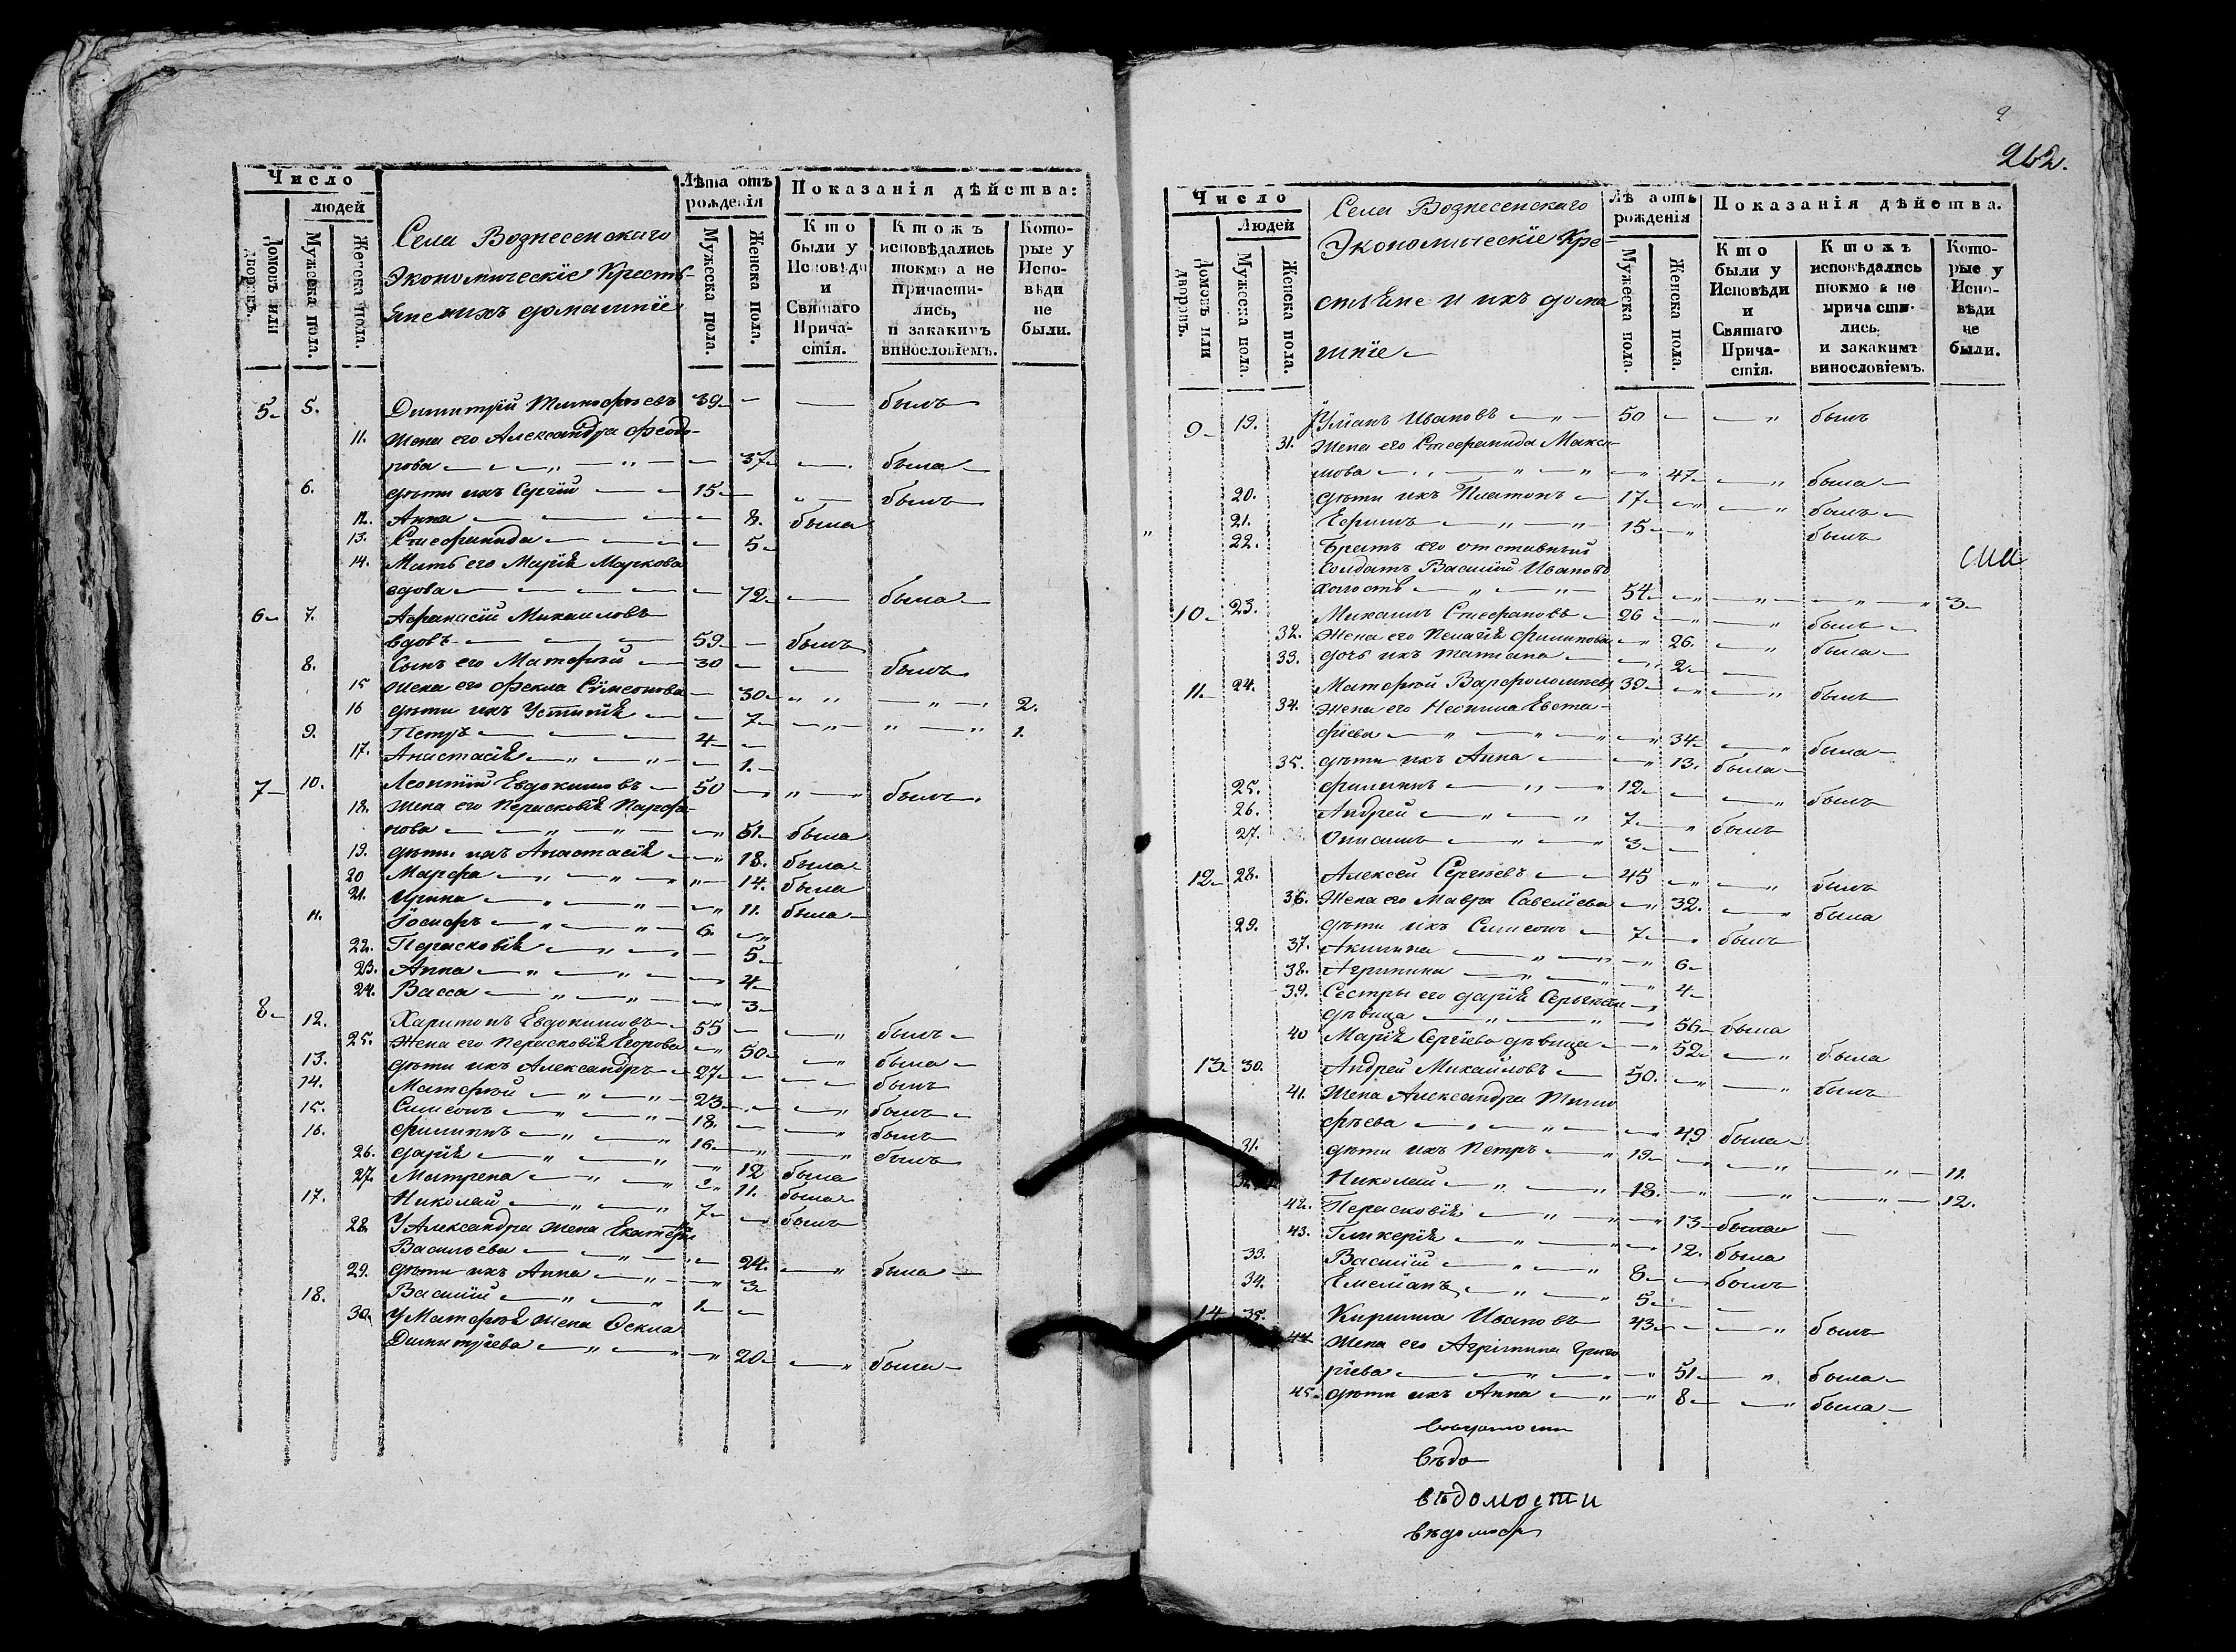 Число
людей
Домовъ или дворовъ.
Мужеска пола.
Женска пола.
Села Вознесенскаго
Экономическіе Кресть-
яне и ихъ домашніе
Лѣта отъ рожденія
Мужеска пола.
Женска пола.
Показанія дѣйства:
Кто были у Исповѣди и Святаго Причастія.
Ктожъ исповѣдались токмо а не причастились, и закакимъ винословіемъ.
Которые у Исповѣди не были.
5 5. Димитрій Тимофѣевъ 39 — — былъ
11. Жена его Александра Феодо-
рова — 37 — была
6. дѣти ихъ Сергій 15 — былъ
12. Анна — 8. была
13. Стефанида — 5
14. Мать его Марія Маркова
вдова — 72 — была
6 7. Афанасій Михайловъ
вдовъ 59 — былъ
8. Сынъ его Матфей 30 — — былъ
15 Жена его Фекла Сѵмеонова — 30 — — 2.
16 дѣти ихъ Устинія — 7 — — 1.
9. Петръ 4 —
17. Анастасія — 1.
7 10. Леонтій Евдокимовъ 50 — — былъ
18. Жена его Перасковія Парфе-
нова — 51 была
19. дѣти ихъ Анастасія — 18. была
20 Марфа — 14. была
21. Ирина — 11. была
11. Іосифъ 6. —
22. Перасковія — 5
23. Анна — 4
24. Васса — 3
8 12. Харитонъ Евдокимовъ 55 — — былъ
25. Жена его Перасковія Егорова — 50 — была
13. дѣти ихъ Александръ 27 — — былъ
14. Матфей 23 — — былъ
15. Симеонъ 18. — — былъ
16. Филиппъ 16 — — былъ
26. Дарія — 12 была
27. Матрена — 11. была
17. Николай 7 — былъ
28. У Александра жена Екатери
на
Васильева — 24. — была
29. дѣти ихъ Анна — 3
18. Василій 1 —
30. У Матфея жена Фекла
Димитріева — 20 — была
2
262.
Число
Людей
Домовъ или дворовъ.
Мужеска пола.
Женска пола.
Села Вознесенскаго
Экономическіе Кре-
стьяне и ихъ дома
шніе
Лѣ а отъ рожденія
Мужеска пола.
Женска пола.
Показанія дѣйства.
Кто были у Исповѣди и Святаго Причастія.
Ктожъ исповѣдались токмо а не причастились. и закакимъ винословіемъ.
Которые у Исповѣди не были.
9 19. Уліанъ Ивановъ 50 — — былъ
31. Жена его Стефанида Макси-
мова — 47 — была
20. дѣти ихъ Платонъ 17 — — былъ
21. Ефимъ 15 — былъ
22. Братъ его отставный
солдатъ Василій Ивановъ
холостъ 54 — — — 3
10 23. Михаилъ Стефановъ 26 — — былъ
32. Жена его Пелагія Филипова — 26. — была
33. дочь ихъ Татіана — 2 —
11. 24. Матфей Варфоломеевъ 39 — — былъ
34. Жена его Неонила Евста-
фіева — 34 — была
35. дѣти ихъ Анна — 13. была
25. Филиппъ 12 — — былъ
26. Андрей 7 — былъ
27. 3 —
12 28. Алексѣй Сергѣевъ 45 — — былъ
36. Жена его Мавра Савеліева — 32. — была
29. дѣти ихъ Симеонъ 7 — былъ
37. Акилина — 6
38. Агрипина — 4
39. Сестры его Дарія Сергѣева
дѣвица — 56 была
40 Марія Сергіева дѣвица — 52 — была
13 30. Андрей Михайловъ 50. — — былъ
41. Жена Александра Тимо
фѣева — 49 была
31. дѣти ихъ Петръ 19 — — — 11.
32. Николай 18. — — — 12.
42. Перасковія — 13 была —
43. Гликерія — 12. была
33. Василій 8 — былъ
34. Емеліанъ 5 — —
14 35. Кирилла Ивановъ 43 — — былъ
44 Жена его Агрипина Григо
ріева — 51 — была
45. дѣти ихъ Анна — 8 — была
вѣдо
вѣдомости